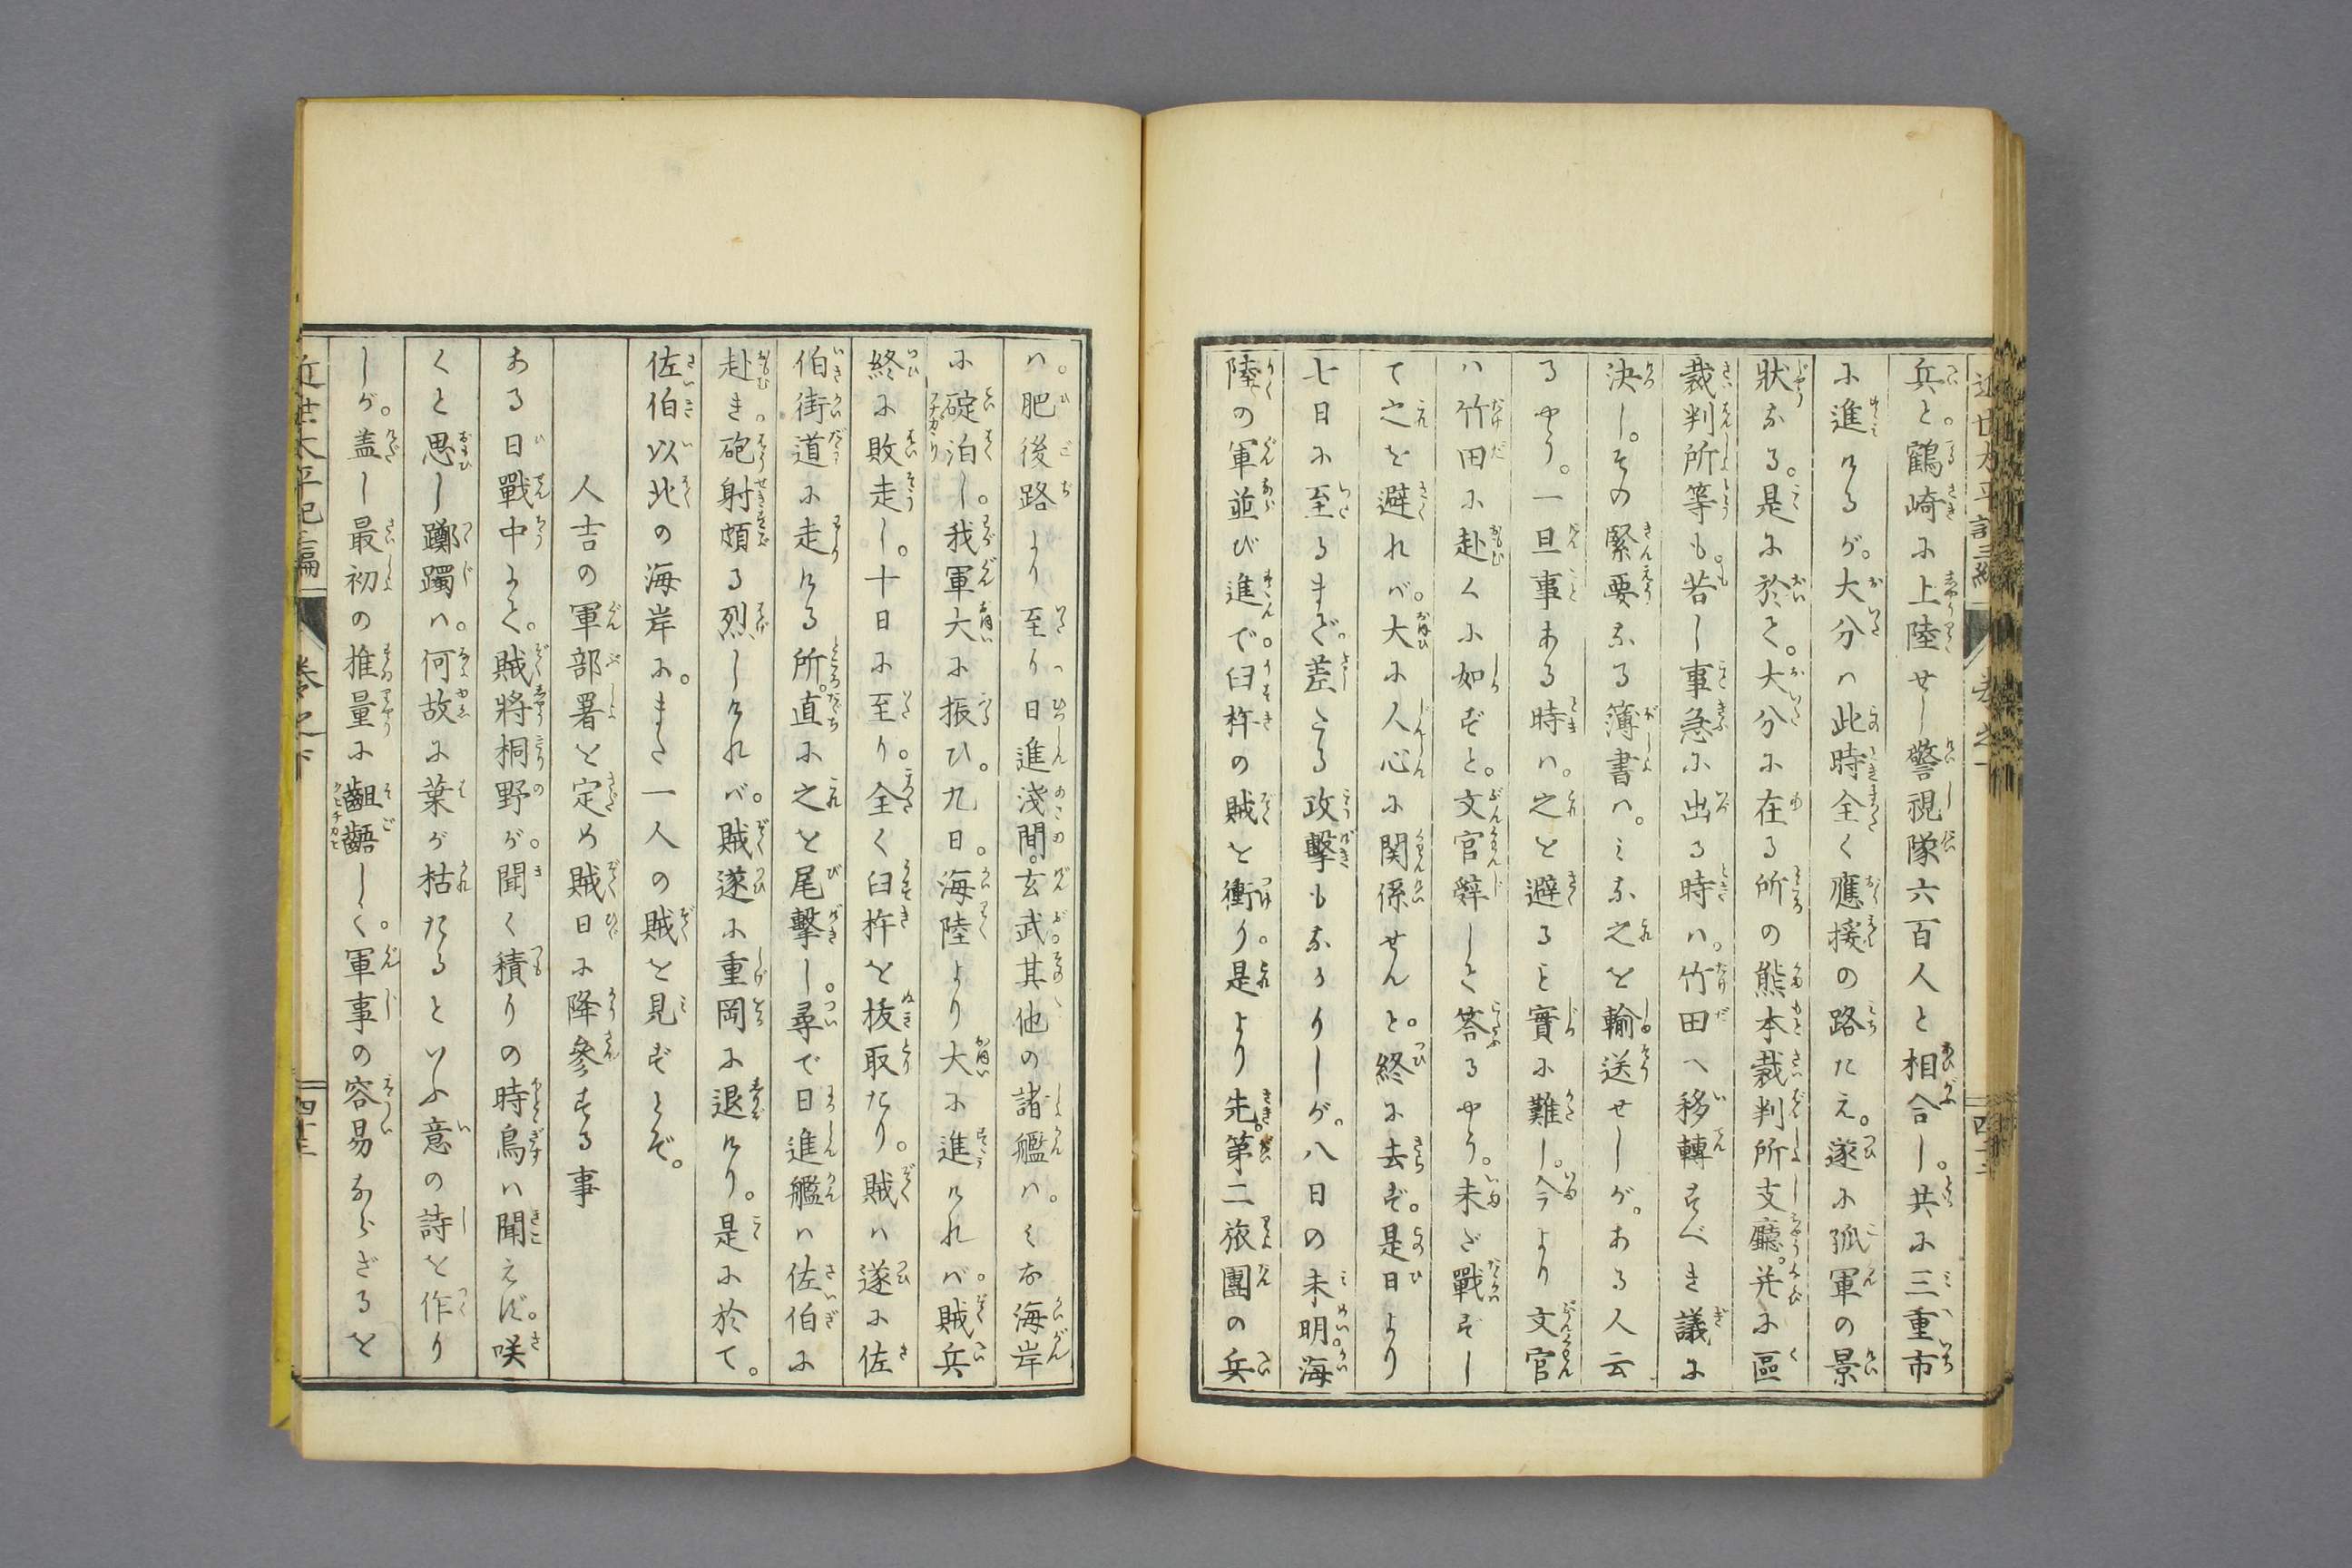 兵と。鶴崎に上陸せし警視隊六百人と相合し。共に三重市
に進けるが。大分ハ此時全く應援の路たえ。遂に孤軍の景
狀なる。是に於て。大分に在る所の熊本裁判所支廳。并に區
裁判所等も。若し事急に出る時ハ。竹田へ移轉すべき議に
決し。その緊要なる簿書ハ。みな之を輸送せしが。ある人云
るやう。一旦事ある時ハ。之を避ること實に難し。今より文官
ハ竹田に赴くに如ずと。文官辭して答るやう。未だ戰ずし
て之を避れバ。大に人心に関係せんと。終に去ず。是日より
七日に至るまで。差したる攻擊もなかりしが。八日の未明海
陸の軍並び進で。臼杵の賊を衝り。是より先。第二旅團の兵
ハ。肥後路より至り日進淺間。玄武。其他の諸艦ハ。みな海岸
に碇泊し。我軍大に振ひ。九日。海陸より大に進けれバ。賊兵
終に敗走し。十日に至り。全く臼杵を抜取たり。賊ハ遂に佐
伯街道に走ける所。直に之を尾擊し。尋で日進艦ハ佐伯に
赴き。砲射頗る烈しけれバ。賊遂に重岡に退けり。是に於て。
佐伯以北の海岸に。また一人の賊を見ずとぞ。
人吉の軍部署を定め賊日に降參する事
ある日戰中にて。賊將桐野が。聞く積りの時鳥ハ聞えず。咲
くと思し躑躅ハ。何故に葉が枯たるといふ意の詩を作り
しが。盖し最初の推量に齟齬しく。軍事の容易ならざるを